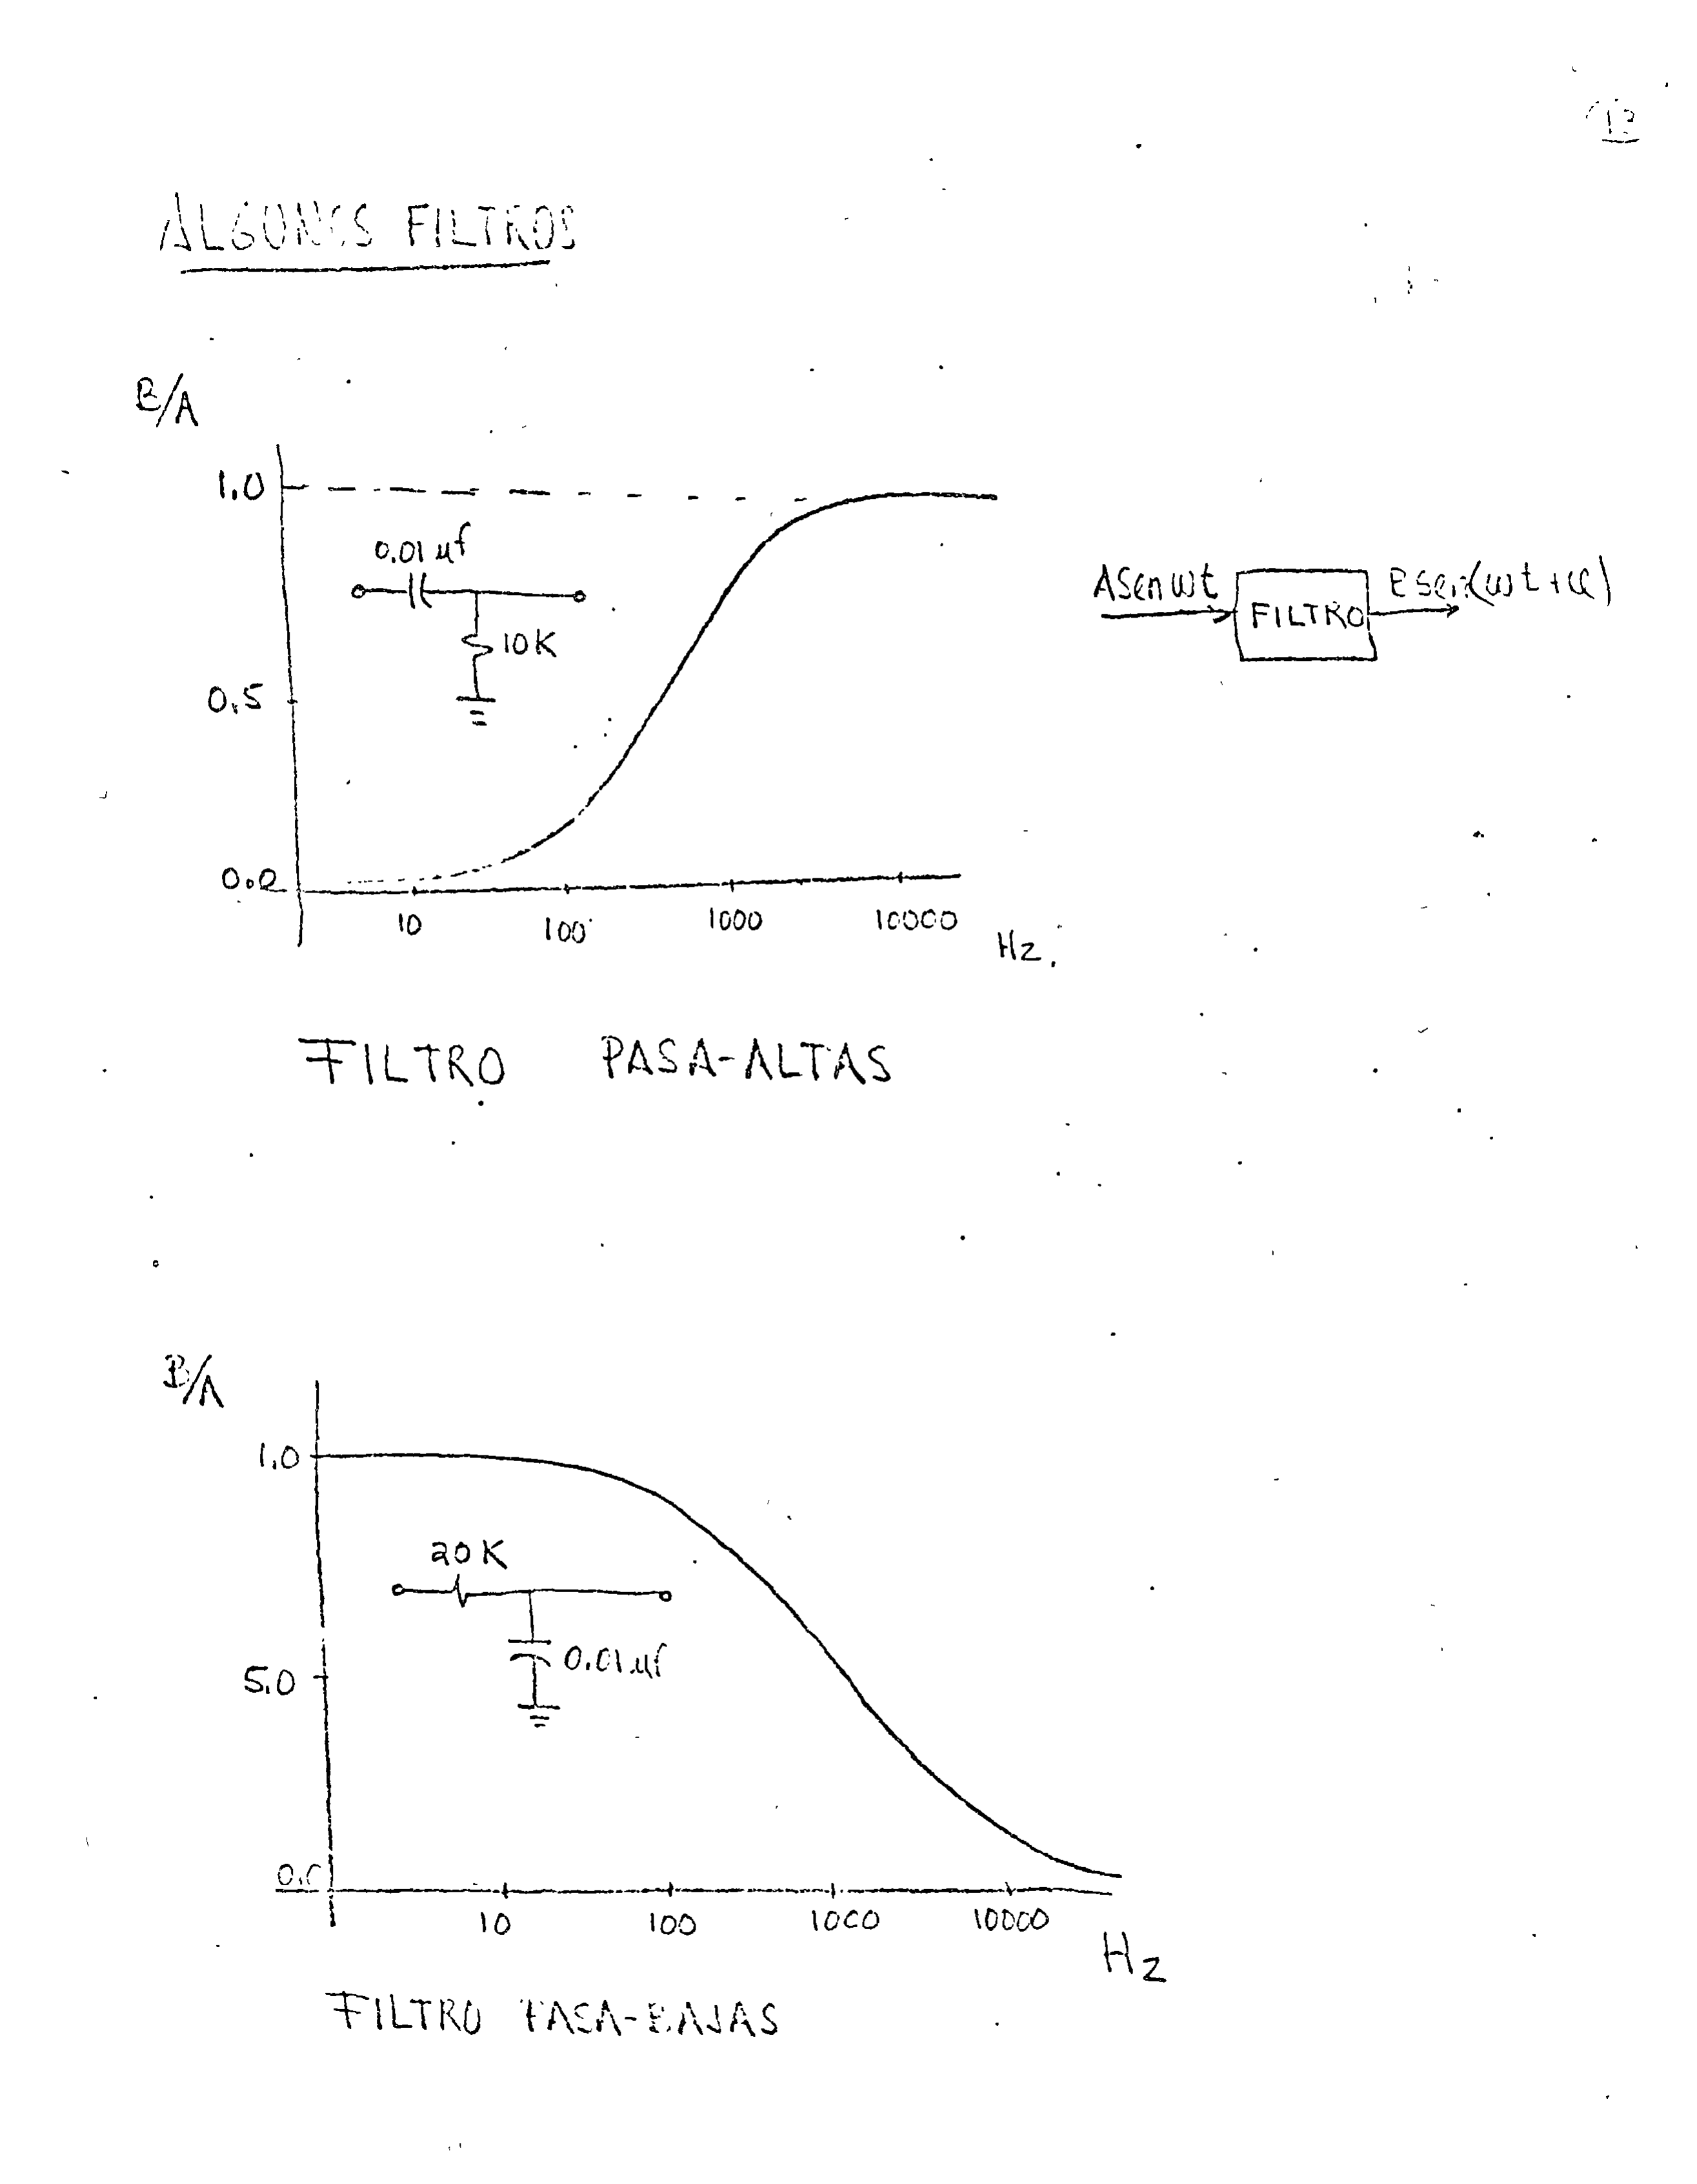 13
ALGUNOS FILTROS
B/A
1.0
0.01 µf
10K
0.5
0.0
10 100 1000 10000
Hz.
ASenwt FILTRO BSen(wt+α)
FILTRO PASA-ALTAS
B/A
1.0
20K
0.01µf
5.0
0.0
10 100 1000 10000
Hz
FILTRO PASA-BAJAS